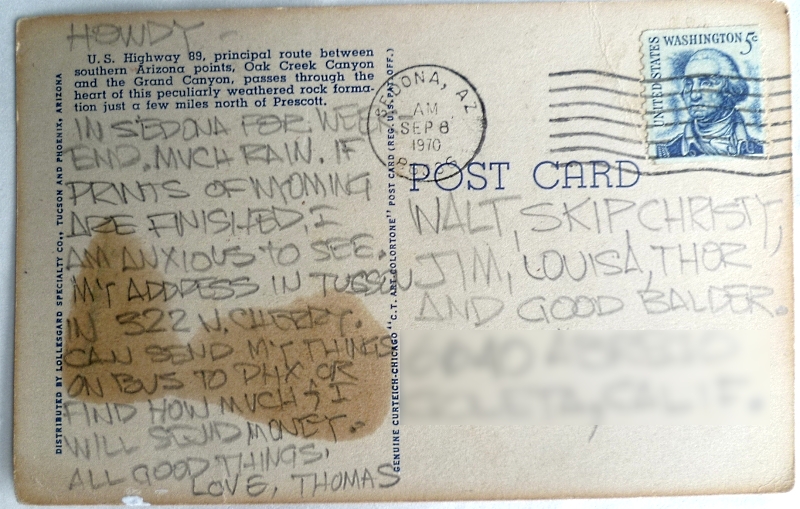 HOWDY -
U.S. Highway 89, principal route between
southern Arizona points, Oak Creek Canyon
and the Grand Canyon, passes through the
heart of this peculiarly weathered rock forma-
tion just a few miles north of Prescott.
IN SEDONA FOR WEEK
END. MUCH RAIN. IF
PRINTS OF WYOMING
ARE FINISHED, I
AM ANXIOUS TO SEE.
MY ADDRESS IN TUSSON
IN 522 N. CHERRY.
CAN SEND MY THINGS
ON BUS TO PHX OR
FIND HOW MUCH & I
WILL SEND MONEY.
ALL GOOD THINGS,
LOVE, THOMAS
DISTRIBUTED BY LOLLESGARD SPECIALTY CO., TUCSON AND PHOENIX, ARIZONA
GENUINE CURTEICH-CHICAGO "C.T. ART-COLORTONE" POST CARD (REG. U.S. PAT. OFF.)
SEDONA, AZ
AM
SEP 8
1970
UNITED STATES
WASHINGTON 5c
POST CARD
WALT, SKIP, CHRISTY,
JIM, LOUISA, THOR
AND GOOD BALDER.